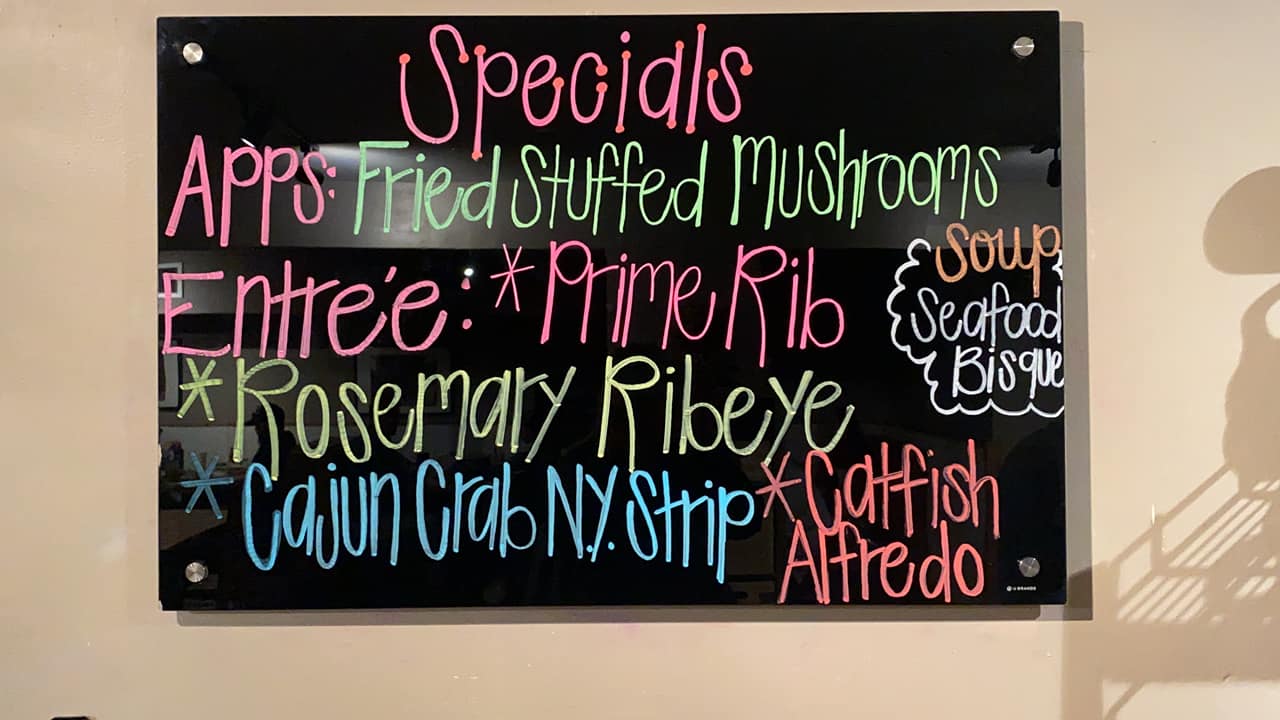 Specials
Apps: Fried Stuffed Mushrooms
Entreé: *Prime Rib
Soup
Seafood
Bisque
*Rosemary Ribeye
*Cajun Crab N.Y. Strip
*Catfish
Alfredo
U BRANDS